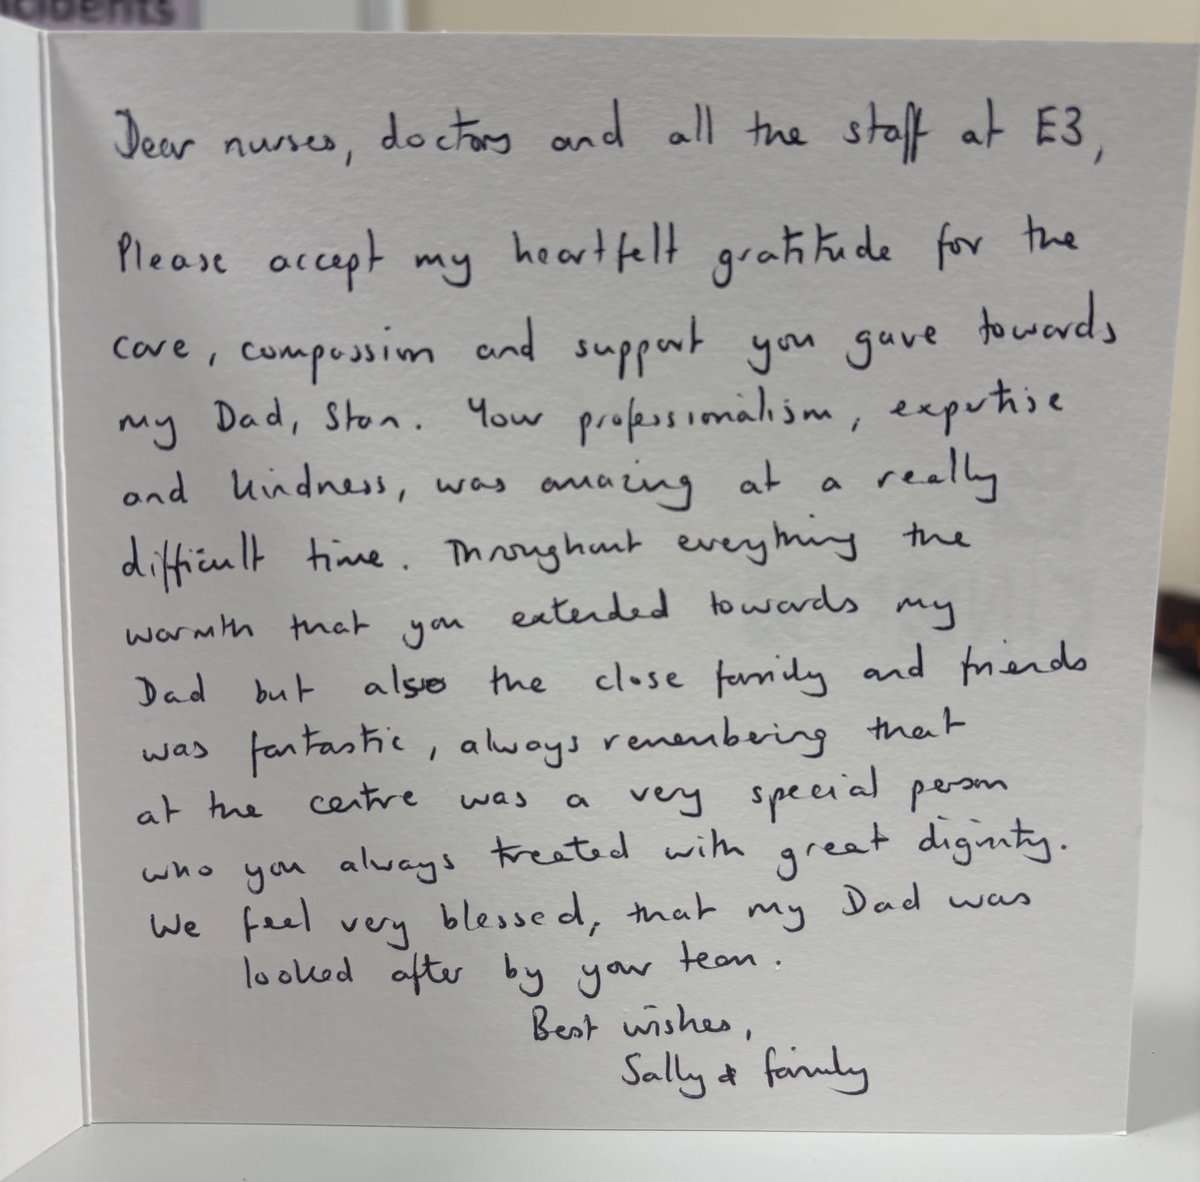 cidents
Dear nurses, doctors and all the staff at E3,
Please accept my heartfelt gratitude for the
care, compassion and support you gave towards
my Dad, Stan. Your professionalism, expertise
and kindness, was amazing at a really
difficult time. Throughout everything the
warmth that you extended towards my
Dad but also the close family and friends
was fantastic, always remembering that
at the centre was a very special person
who you always treated with great dignity.
We feel very blessed, that my Dad was
looked after by your team.
Best wishes,
Sally & family